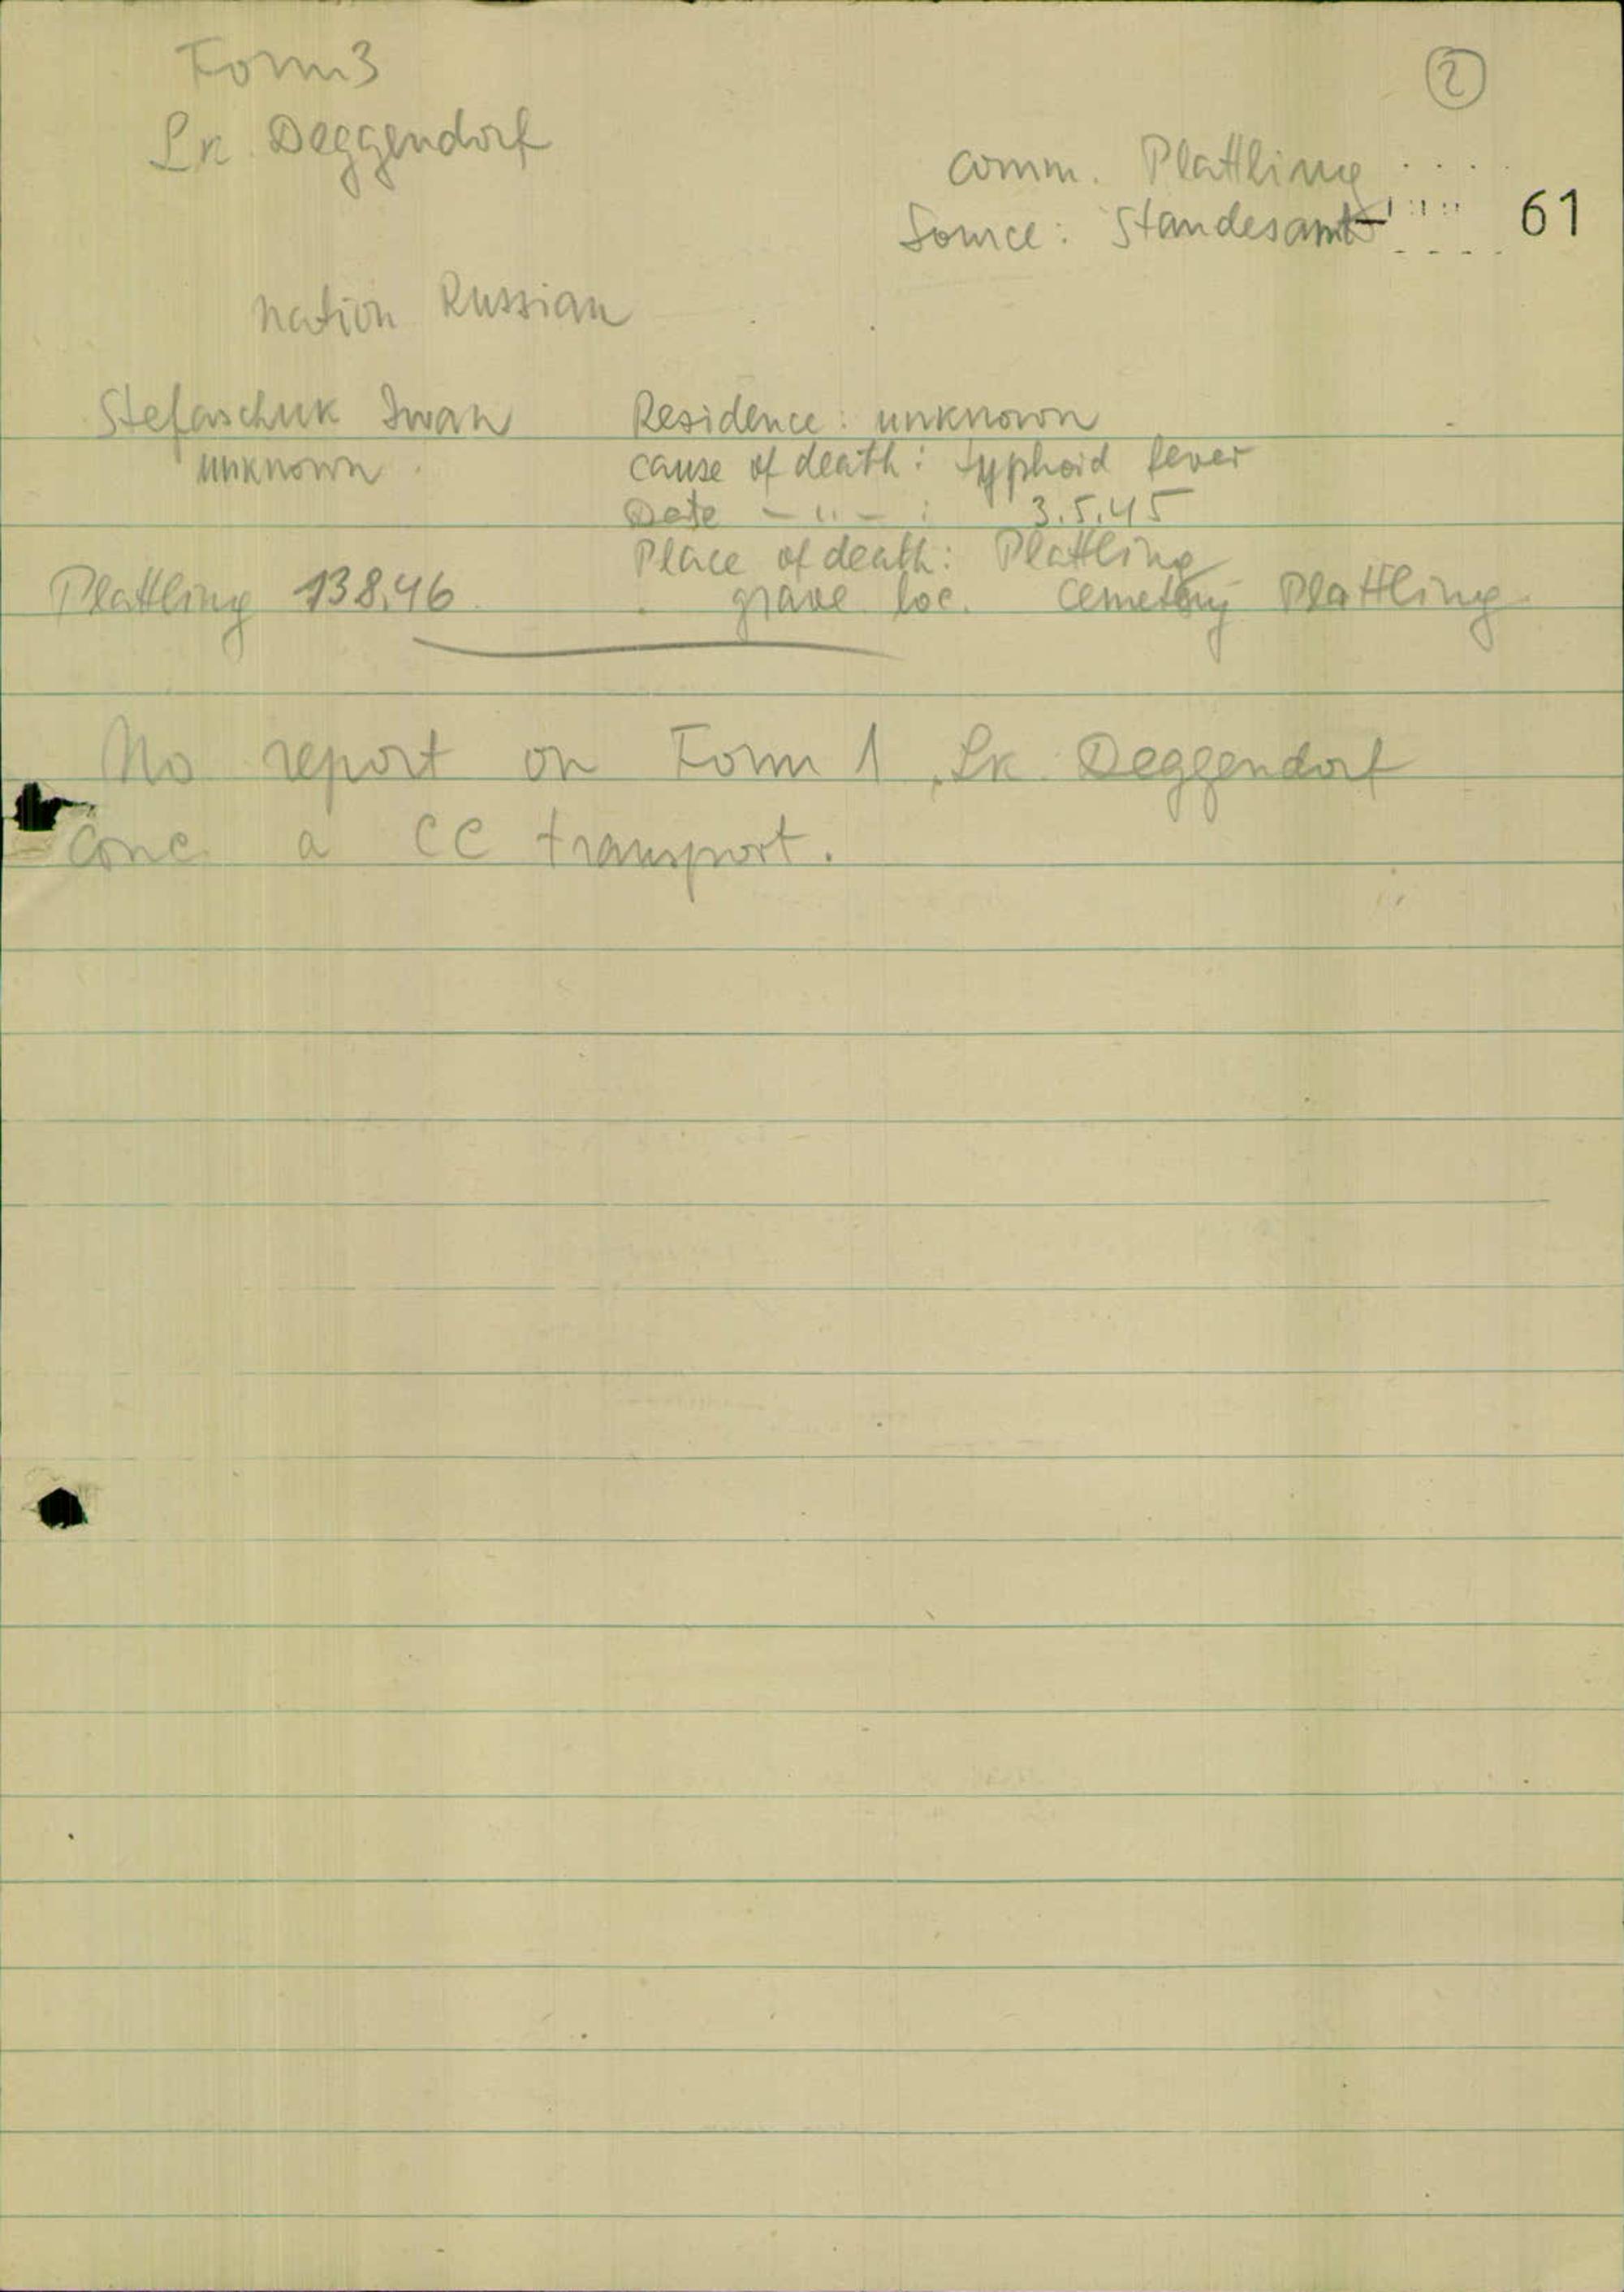 Form 3
2
Lk. Deggendorf
comm. Plattling
Source: Standesamt
61
nation Russian
Stefaschuk Iwan
unknown
Residence: unknown
cause of death: typhoid fever
Date -"- : 3.5.45
Place of death: Plattling
Plattling 13 8.46
grave loc. Cemetery Plattling
No report on Form 1, Lk. Deggendorf
conc. a CC transport.